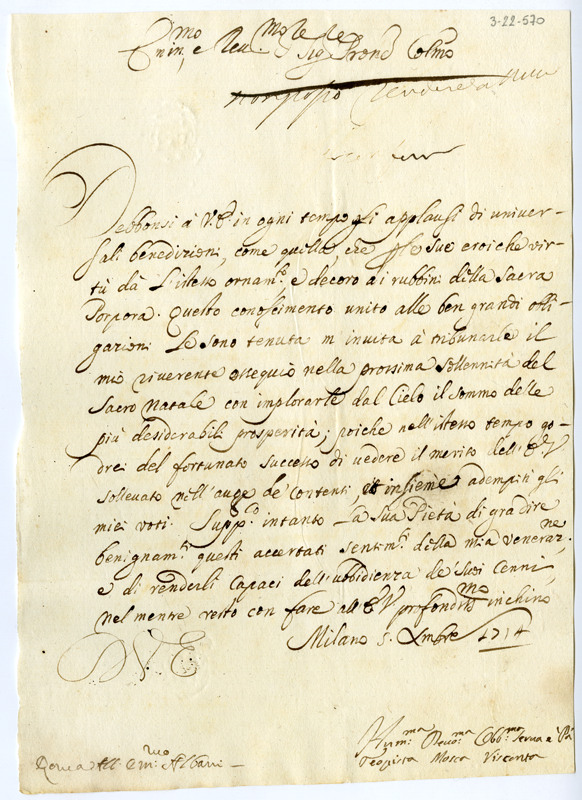 3-22-570
Em.mo e Rev.mo Sig.re Pron.e Col.mo
rendere
Debbonsi à V.E. in ogni tempo gli applausi di univer-
sali benedizioni, come quella, che le sue eroiche vir-
tù dà l'istesso ornam.to e decoro ai rubbini della Sacra
Porpora. Questo conoscimento unito alle ben grandi obli-
gazioni Le sono tenuta m'invita à tributarle il
mio riverente ossequio nella prossima sollennità del
Sacro Natale con implorarle dal Cielo il sommo delle
più desiderabili prosperità; poiche nell'istesso tempo go-
drei del fortunato successo di vedere il merito dell'E.V.
sollevato nell'auge de' contenti, et insieme adempiti gli
miei voti. Supp.co intanto la Sua Pietà di gradire
benignam.te questi accertati sentim.ti della mia veneraz.ne
e di renderli capaci dell'ubbidienza de' suoi cenni,
nel mentre resto con fare all'E.V. profondis.mo inchino
Milano 5. Xmbre 1714
D.V.E.
Hum.ma Devo.ma Obb.ma Serva
Teopista Mosca Visconta
Roma All' Em.mo Albani